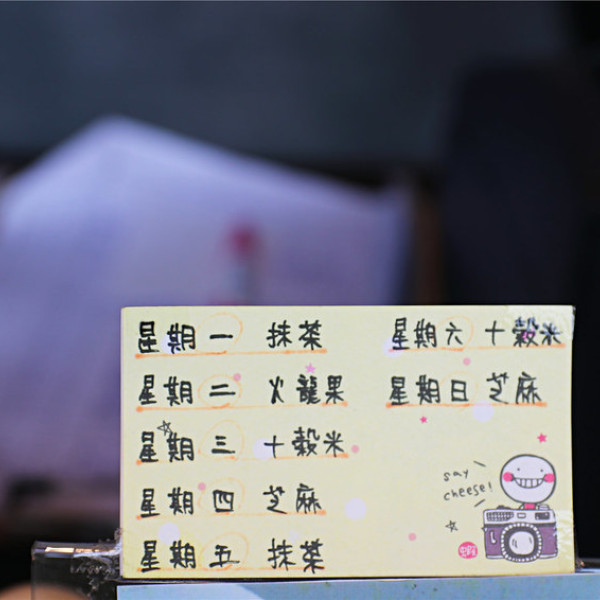 星期一 抹茶
星期二 火龍果
星期三 十穀米
星期四 芝麻
星期五 抹茶
星期六 十穀米
星期日 芝麻
say
cheese!